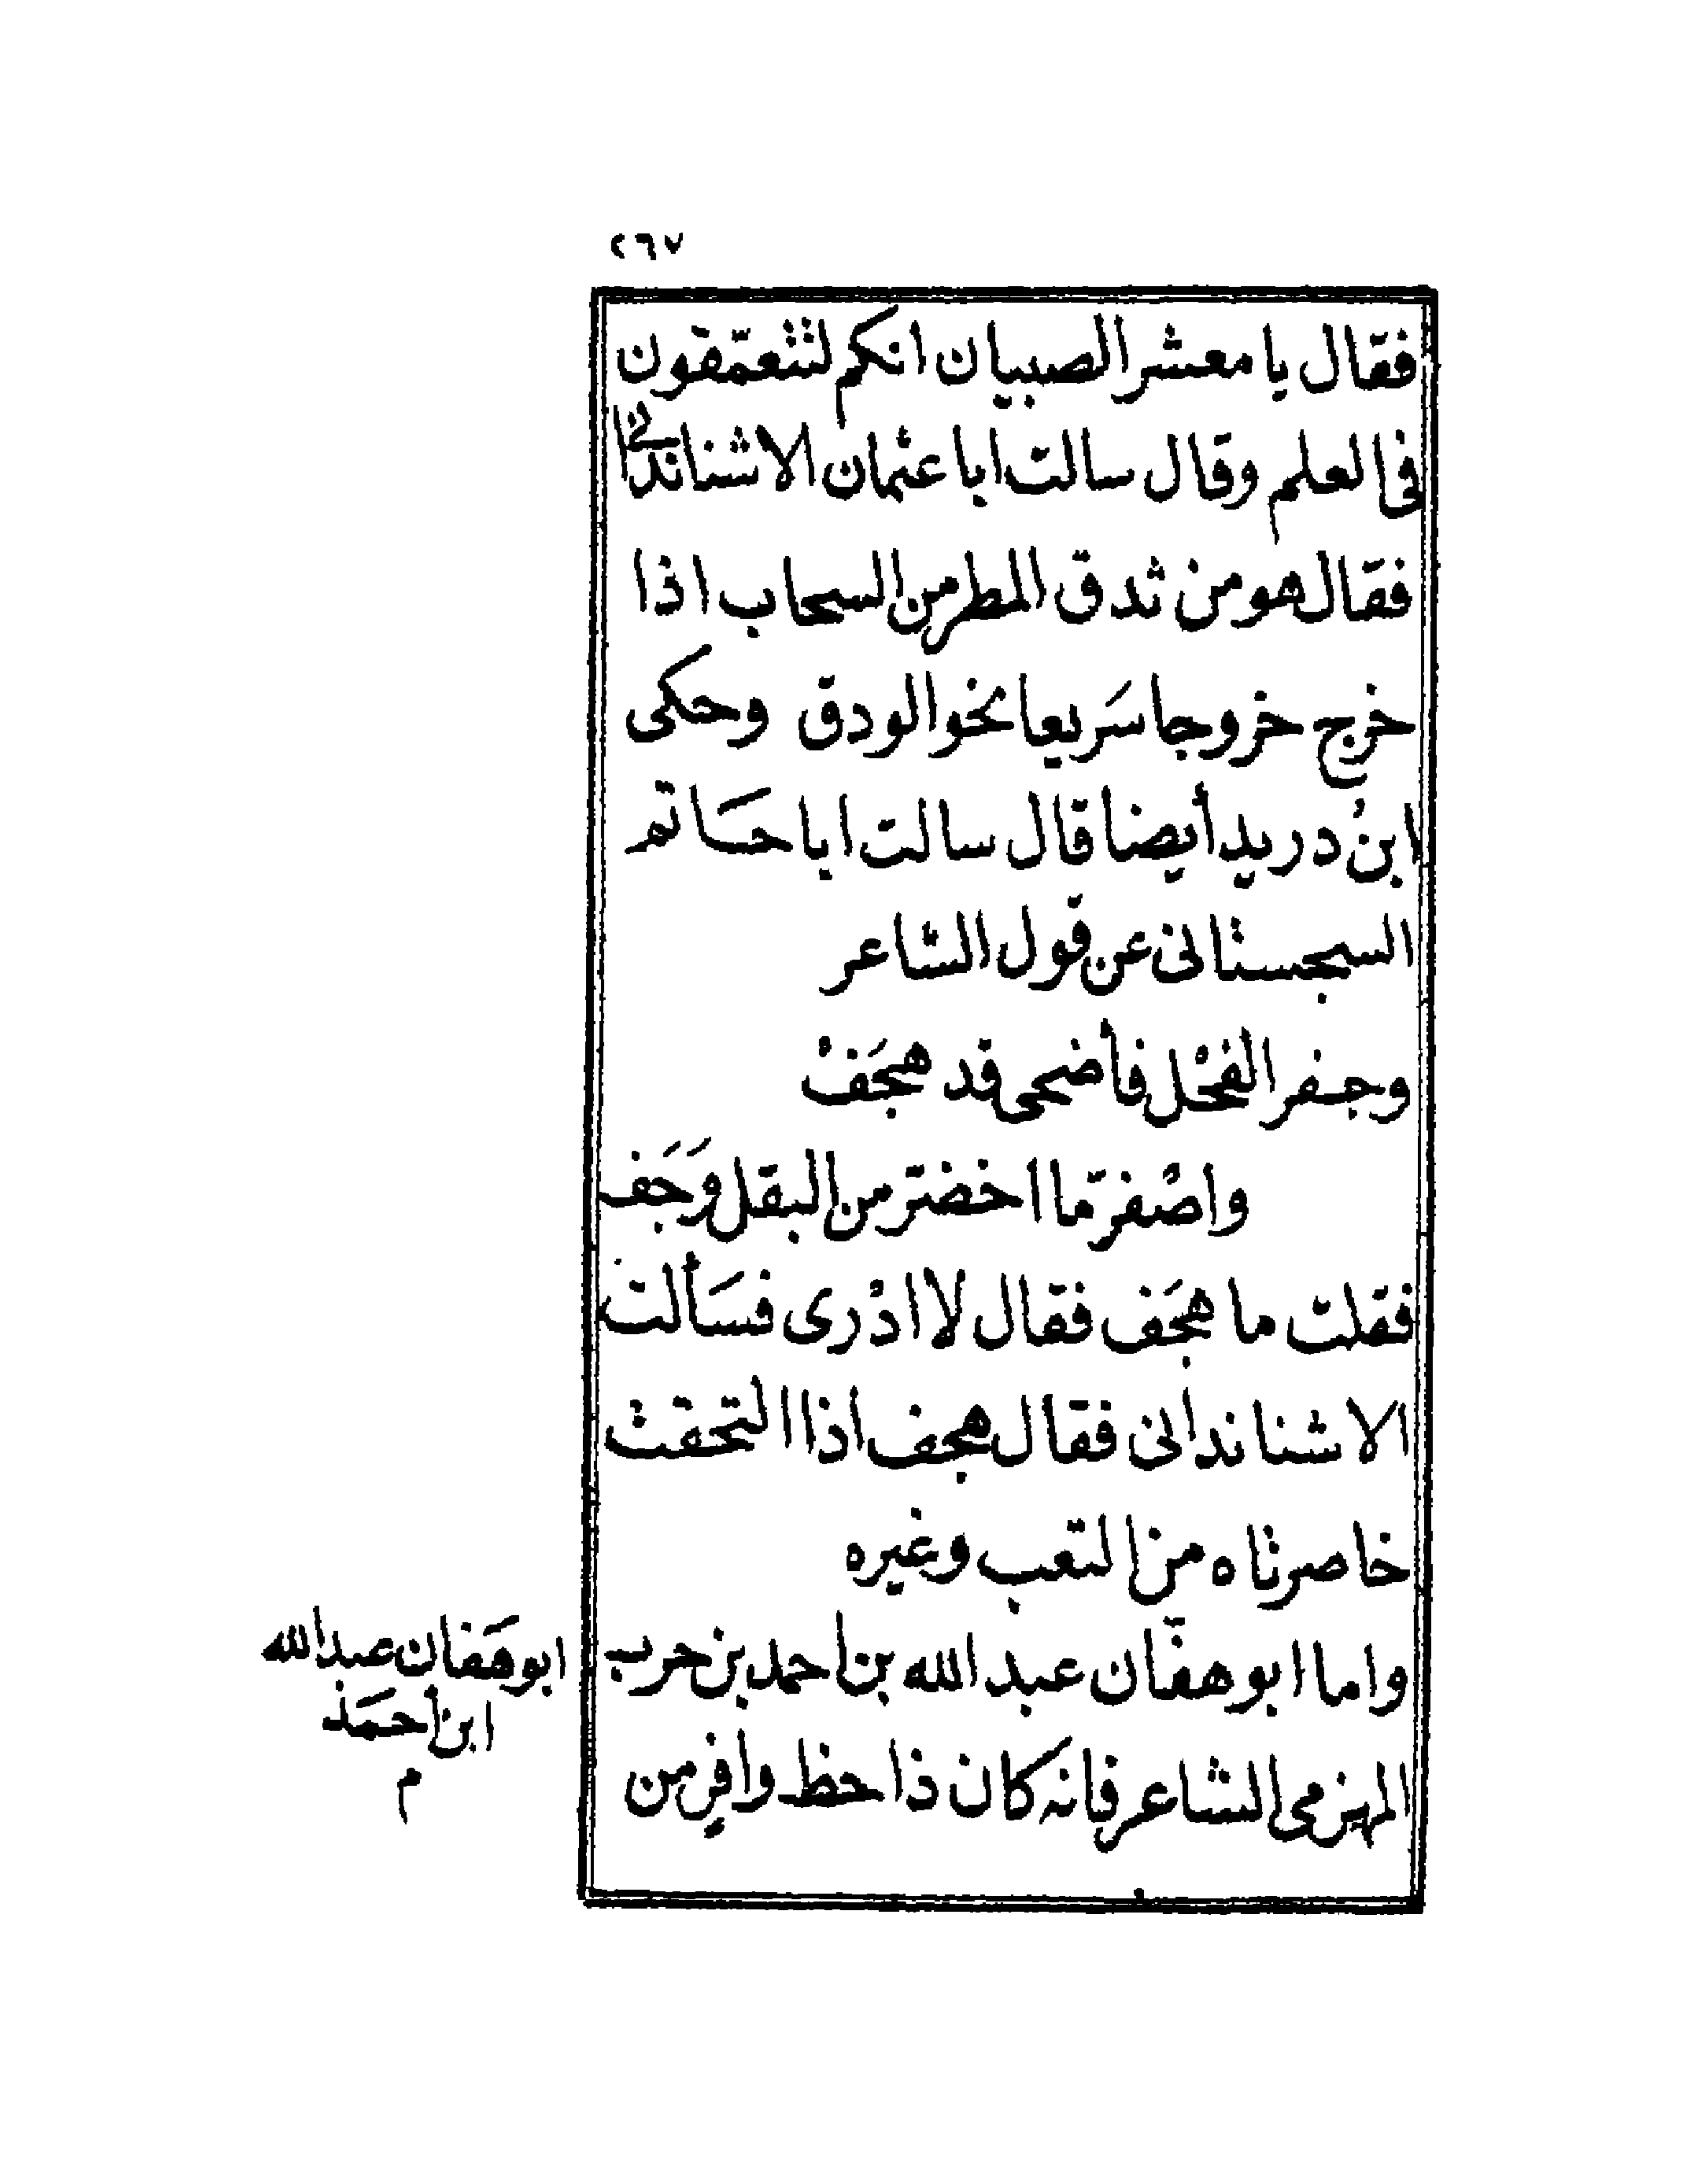 ٢٦٧
فقال يا معشر الصبيان انكم لتتعمّقون
فى العلم وقال سالت ابا عثمان الاشناندانى
فقال هو من ثدق المطر من السحاب اذا
خرج خروجا سَريعا نحو الودق وحكى
ابنُ دريد أيضا قال سالت ابا حَاتم
السجستانى عن قول الشاعر
وجفر الفحْل فأضحى قد هجَفْ
واصْفرّ ما اخضرّ من البقل وَجَف
فقلت ما هجَف فقال لا ادْرى فسَألت
الاشناندانى فقال هجف اذا التحقت
خاصرتاه من التعب وغيره
واما ابو هفّان عبد الله بن احمد بن حرب
المهزمى الشاعر فانه كان ذا حظ وافرٍ من
ابو هَفان عبد الله
ابن أحمَد
م